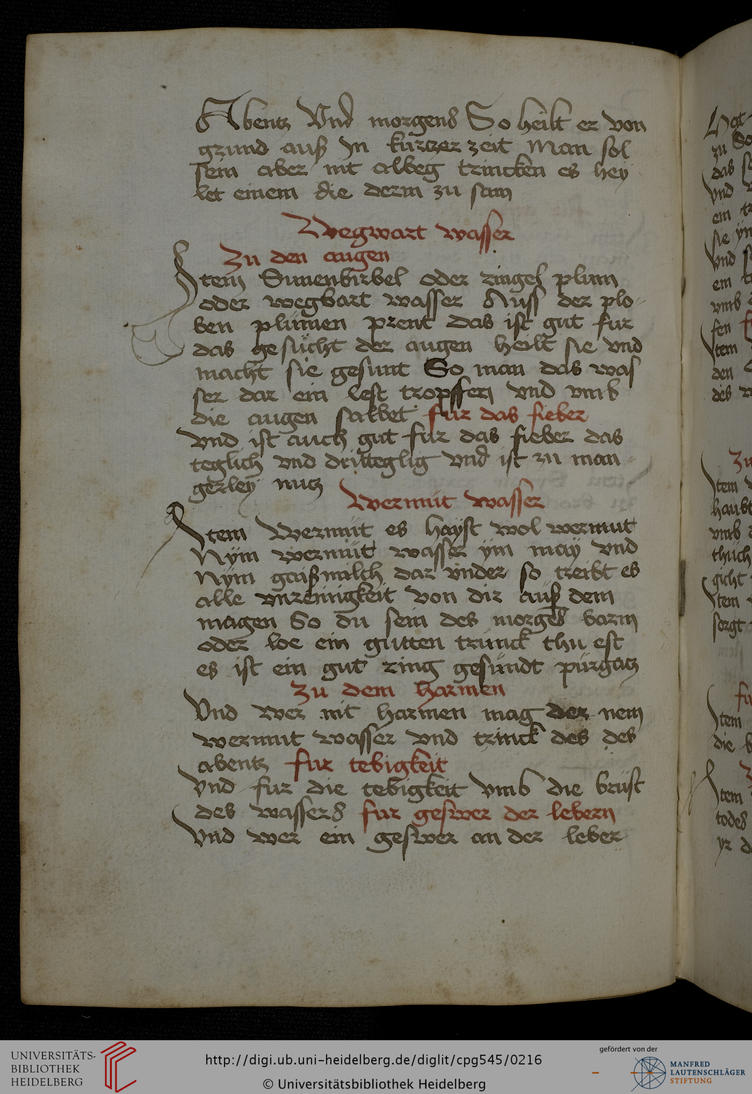 Abentz Vnd morgens So heilt er von
grund auß Jn kurtzer zeit Man sol
sein aber nit albeg trincken es hey
let einem die derm zu sam
Wegwart wasser
Zu den augen
Jtem Sunenbirbel oder ringel plum
oder wegbart wasser Auß der plo
ben plumen prent das ist gut fur
das gesücht der augen heilt sie vnd
macht sie gesunt So man das was
ser dar ein lest tropffen vnd vmb
die augen salbet fur das fieber
vnd ist auch gut fur das fieber das
teglich vnd dritteglig vnd ist zu man
gerley nutz
Wermut wasser
Jtem Wermut es hayst wol wermut
Nym wermut wasser ym may vnd
Nym gaißmilch dar vnder so treibt es
alle vnreinigkeit von dir auß dem
magen So du sein des morgens warm
oder loe ein gutten trunck thu est
es ist ein gut ring gesundt purgatz
Zu dem harmen
Vnd wer nit harmen mag der nem
wermut wasser vnd trinck des des
abentz fur tebigkeit
Vnd fur die tebigkeit vmb die brust
des wassers fur geswer der lebern
Vnd wer ein geswer an der leber
UNIVERSITÄTS-
BIBLIOTHEK
HEIDELBERG
http://digi.ub.uni-heidelberg.de/diglit/cpg545/0216
© Universitätsbibliothek Heidelberg
gefördert von der
MANFRED
LAUTENSCHLÄGER
STIFTUNG